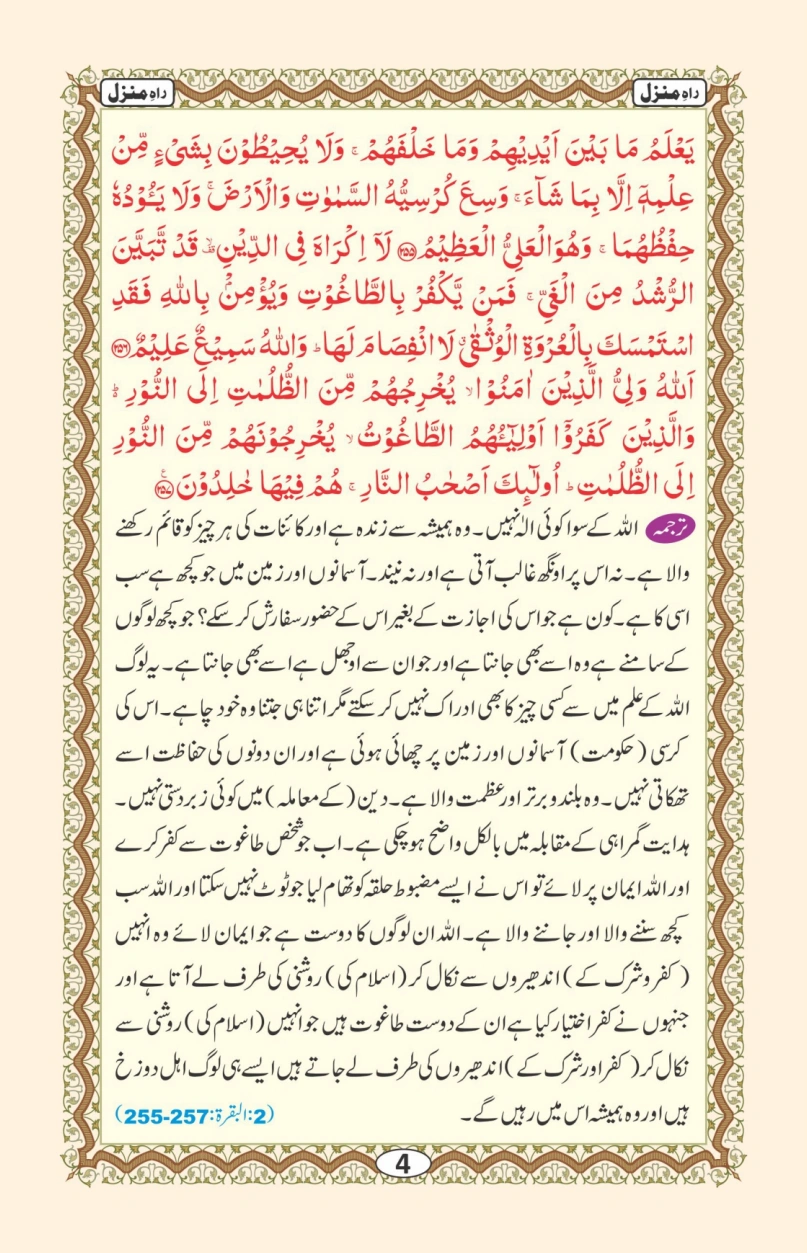 راہِ منزل
راہِ منزل
يَعْلَمُ مَا بَيْنَ اَيْدِيْهِمْ وَمَا خَلْفَهُمْ ۚ وَلَا يُحِيْطُوْنَ بِشَىْءٍ مِّنْ
عِلْمِهٖٓ اِلَّا بِمَا شَآءَ ۚ وَسِعَ كُرْسِيُّهُ السَّمٰوٰتِ وَالْاَرْضَ ۚ وَلَا يَـُٔوْدُهٗ
حِفْظُهُمَا ۚ وَهُوَ الْعَلِىُّ الْعَظِيْمُ ﴿۲۵۵﴾ لَآ اِكْرَاهَ فِى الدِّيْنِ ۙ قَدْ تَّبَيَّنَ
الرُّشْدُ مِنَ الْغَىِّ ۚ فَمَنْ يَّكْفُرْ بِالطَّاغُوْتِ وَيُؤْمِنْۢ بِاللهِ فَقَدِ
اسْتَمْسَكَ بِالْعُرْوَةِ الْوُثْقٰى ۗ لَا انْفِصَامَ لَهَا ؕ وَاللهُ سَمِيْعٌ عَلِيْمٌ ﴿۲۵۶﴾
اَللهُ وَلِىُّ الَّذِيْنَ اٰمَنُوْا ۙ يُخْرِجُهُمْ مِّنَ الظُّلُمٰتِ اِلَى النُّوْرِ ؕ
وَالَّذِيْنَ كَفَرُوْٓا اَوْلِيٰٓـُٔهُمُ الطَّاغُوْتُ ۙ يُخْرِجُوْنَهُمْ مِّنَ النُّوْرِ
اِلَى الظُّلُمٰتِ ؕ اُولٰٓئِكَ اَصْحٰبُ النَّارِ ۚ هُمْ فِيْهَا خٰلِدُوْنَ ﴿۲۵۷﴾
ترجمہ اللہ کے سوا کوئی الٰہ نہیں۔ وہ ہمیشہ سے زندہ ہے اور کائنات کی ہر چیز کو قائم رکھنے
والا ہے۔ نہ اس پر اونگھ غالب آتی ہے اور نہ نیند۔ آسمانوں اور زمین میں جو کچھ ہے سب
اسی کا ہے۔ کون ہے جو اس کی اجازت کے بغیر اس کے حضور سفارش کر سکے؟ جو کچھ لوگوں
کے سامنے ہے وہ اسے بھی جانتا ہے اور جو ان سے اوجھل ہے اسے بھی جانتا ہے۔ یہ لوگ
اللہ کے علم میں سے کسی چیز کا بھی ادراک نہیں کر سکتے مگر اتنا ہی جتنا وہ خود چاہے۔ اس کی
کرسی (حکومت) آسمانوں اور زمین پر چھائی ہوئی ہے اور ان دونوں کی حفاظت اسے
تھکاتی نہیں۔ وہ بلند و برتر اور عظمت والا ہے۔ دین (کے معاملہ) میں کوئی زبردستی نہیں۔
ہدایت گمراہی کے مقابلہ میں بالکل واضح ہو چکی ہے۔ اب جو شخص طاغوت سے کفر کرے
اور اللہ ایمان پر لائے تو اس نے ایسے مضبوط حلقہ کو تھام لیا جو ٹوٹ نہیں سکتا اور اللہ سب
کچھ سننے والا اور جاننے والا ہے۔ اللہ ان لوگوں کا دوست ہے جو ایمان لائے وہ انہیں
(کفر و شرک کے) اندھیروں سے نکال کر (اسلام کی) روشنی کی طرف لے آتا ہے اور
جنہوں نے کفر اختیار کیا ہے ان کے دوست طاغوت ہیں جو انہیں (اسلام کی) روشنی سے
نکال کر (کفر اور شرک کے) اندھیروں کی طرف لے جاتے ہیں ایسے ہی لوگ اہل دوزخ
ہیں اور وہ ہمیشہ اس میں رہیں گے۔ (2:البقرة:257-255)
4